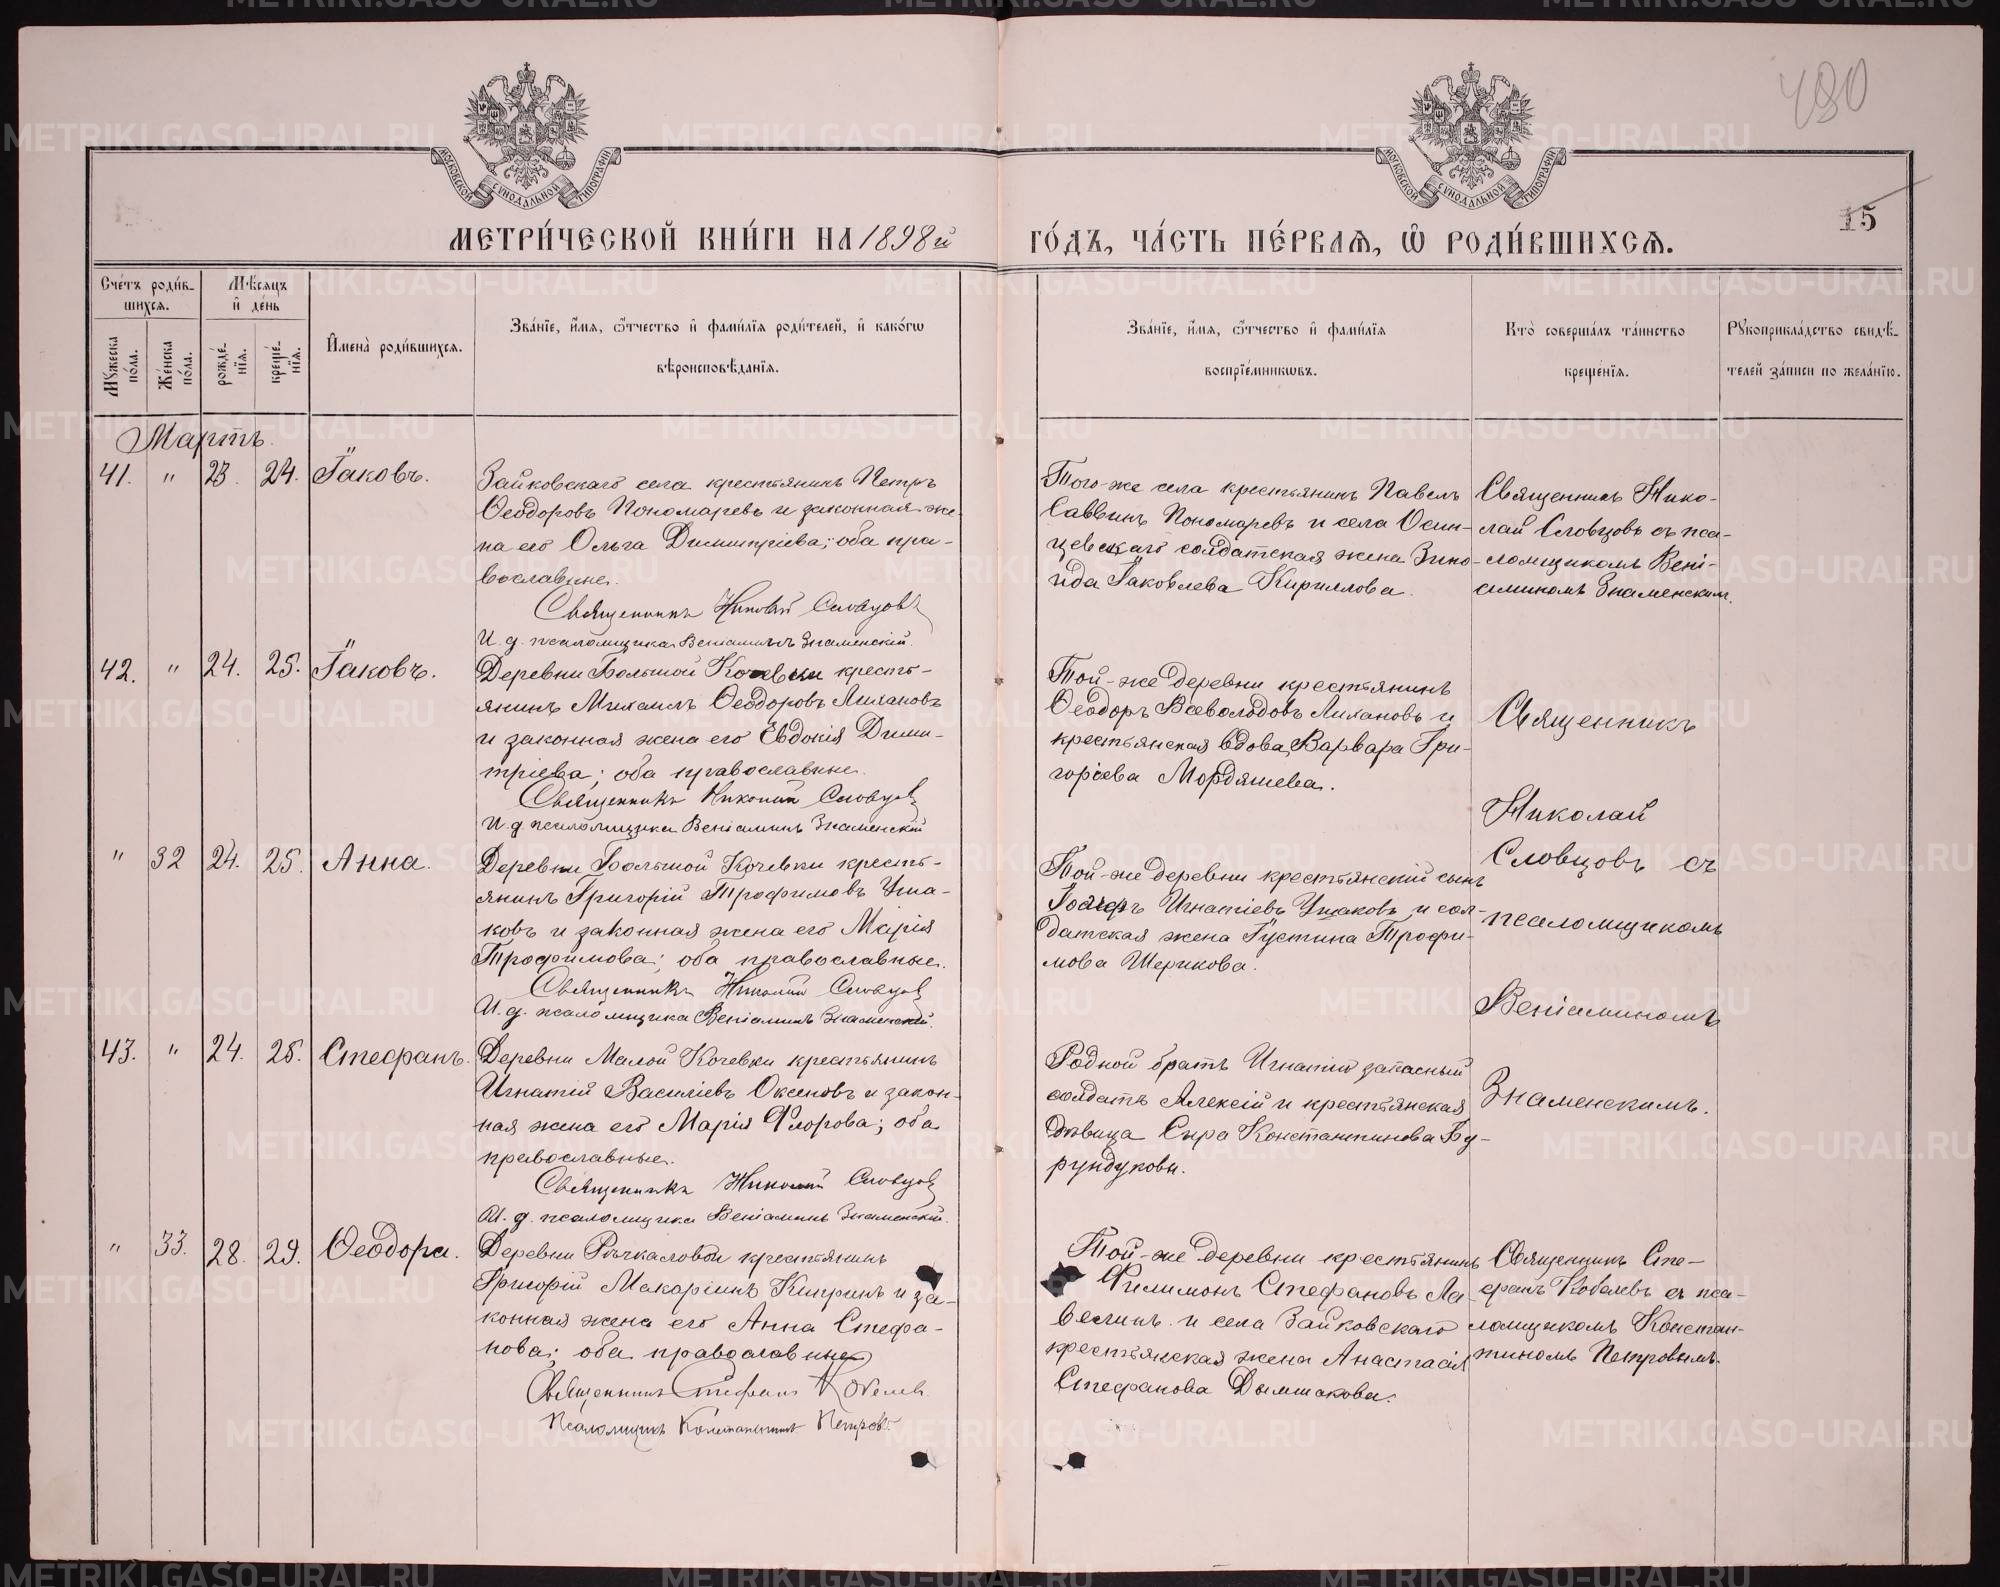 480
МОСКОВСКОЙ СѴНОДАЛЬНОЙ ТИПОГРАФІИ
МОСКОВСКОЙ СѴНОДАЛЬНОЙ ТИПОГРАФІИ
15
МЕТРИ́ЧЕСКОЙ КНИ́ГИ НА 1898й
ГО́ДЪ, ЧА́СТЬ ПЕ́РВАѦ, Ѽ РОДИ́ВШИХСѦ.
Сче́тъ роди́в-
шихсѧ.
Мѣ́сѧцъ
и҆ де́нь
Мꙋ́жеска
по́ла.
Же́нска
по́ла.
рожде́-
нїѧ.
креще́-
нїѧ.
И҆мена̀ роди́вшихсѧ.
Зва́нїе, и҆́мѧ, ѻ҆́тчество и҆ фами́лїѧ роди́телей, и҆ како́гѡ
вѣроисповѣ́данїѧ.
Зва́нїе, и҆́мѧ, ѻ҆́тчество и҆ фами́лїѧ
воспрїе́мникѡвъ.
Кто̀ соверша́лъ та́инство
креще́нїѧ.
Рꙋкоприкла́дство свидѣ́-
телей за́писи по жела́нїю.
Мартъ.
41. " 23. 24. Іаковъ.
Зайковскаго села крестьянинъ Петръ
Ѳеодоровъ Пономаревъ и законная же-
на его Ольга Димитріева; оба пра-
вославные.
Священникъ Николай Словцовъ
И. д. псаломщика Веніаминъ Знаменскій.
Того-же села крестьянинъ Павелъ
Саввинъ Пономаревъ и села Осин-
цевскаго солдатская жена Зино-
ида Іаковлева Кириллова.
Священникъ Нико-
лай Словцовъ съ пса-
ломщикомъ Вені-
аминомъ Знаменскимъ.
42. " 24. 25. Іаковъ.
Деревни Большой Кочевки кресть-
янинъ Михаилъ Ѳеодоровъ Лихановъ
и законная жена его Евдокія Дими-
тріева; оба православные.
Священникъ Николай Словцовъ
И. д. псаломщика Веніаминъ Знаменскій
Той-же деревни крестьянинъ
Ѳеодоръ Всеволодовъ Лихановъ и
крестьянская вдова Варвара Гри-
горіева Мордяшева.
Священникъ
Николай
Словцовъ съ
псаломщикомъ
Веніаминомъ
Знаменскимъ.
" 32 24. 25. Анна.
Деревни Большой Кочевки кресть-
янинъ Григорій Трофимовъ Уша-
ковъ и законная жена его Марія
Трофимова; оба православные.
Священникъ Николай Словцовъ
И. д. псаломщика Веніаминъ Знаменскій.
Той-же деревни крестьянскій сынъ
Игнатіевъ Ушаковъ и сол-
датская жена Іустина Трофи-
мова Шерикова.
43. " 24. 25. Стефанъ.
Деревни Малой Кочевки крестьянинъ
Игнатій Василіевъ Оксеновъ и закон-
ная жена его Марія Флорова; оба
православные.
Священникъ Николай Словцовъ
И. д. псаломщика Веніаминъ Знаменскій.
Родной братъ Игнатія запасный
солдатъ Алексій и крестьянская
дѣвица Сира Константинова Бу-
рундуковы.
" 33. 28. 29. Ѳеодора.
Деревни Рычкаловой крестьянинъ
Григорій Макаріинъ Кипринъ и за-
конная жена его Анна Стефа-
нова; оба православные
Священникъ Стефанъ Кобелевъ.
Псаломщикъ Константинъ Петровъ.
Той-же деревни крестьянинъ
Филимонъ Стефановъ Ла-
веченъ и села Зайковскаго
крестьянская жена Анастасія
Стефанова Дымшакова.
Священникъ Сте-
фанъ Кобелевъ съ пса-
ломщикомъ Констан-
тиномъ Петровымъ.
METRIKI.GASO-URAL.RU